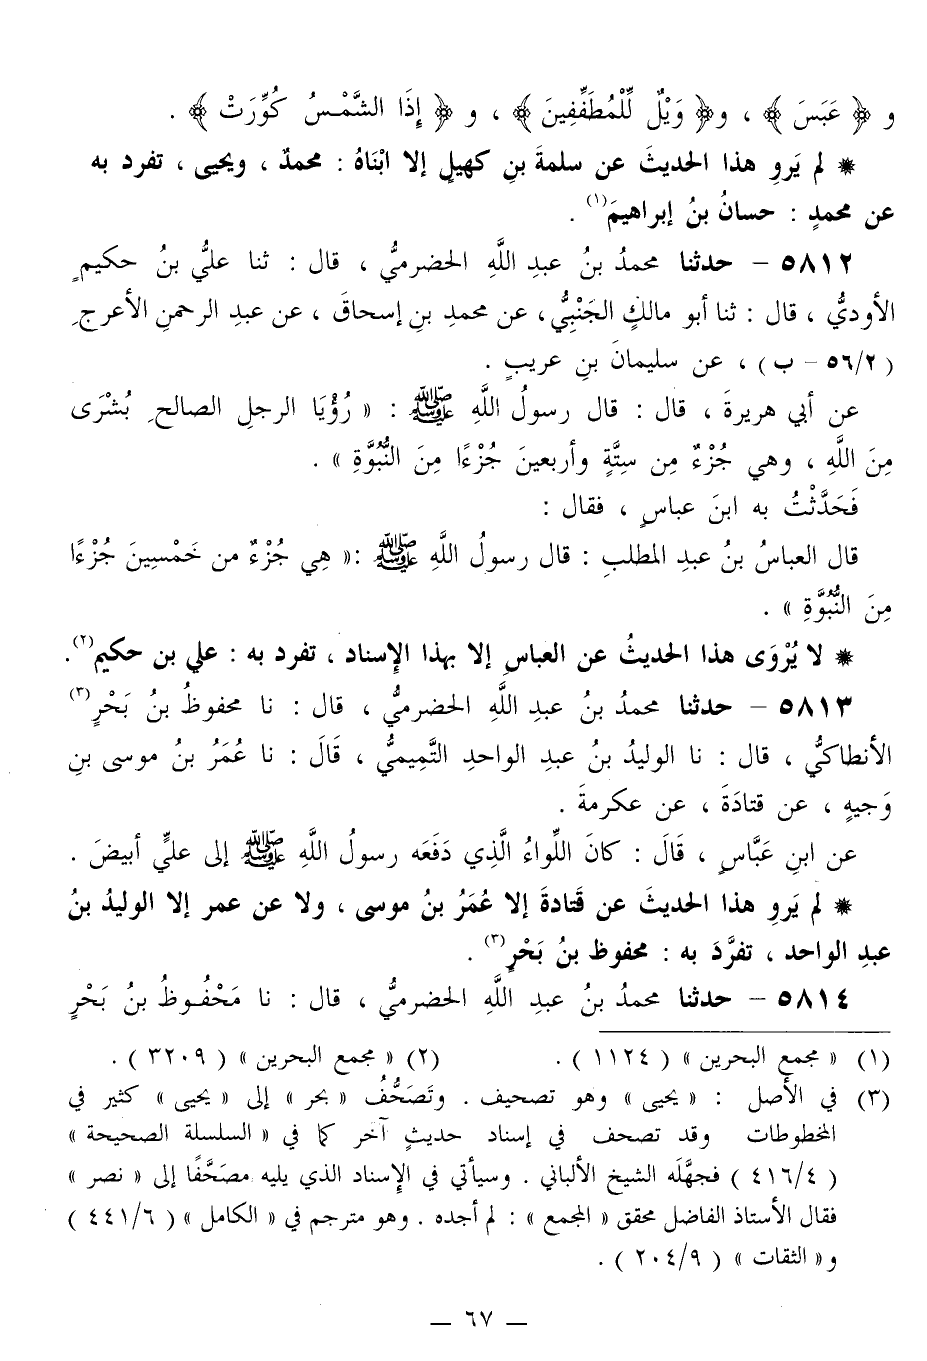 و ﴿ عَبَسَ ﴾ ، و﴿ وَيْلٌ لِّلْمُطَفِّفِينَ ﴾ ، و ﴿ إِذَا الشَّمْسُ كُوِّرَتْ ﴾ .
✷ لم يَروِ هذا الحديثَ عن سلمةَ بنِ كهيلٍ إلا ابْنَاهُ : محمدٌ ، ويحيى ، تفرد به
عن محمدٍ : حسانُ بنُ إبراهيمَ(١) .
٥٨١٢ – حدثنا محمدُ بنُ عبدِ اللَّهِ الحضرميُّ ، قال : ثنا عليُّ بنُ حكيمٍ
الأوديُّ ، قال : ثنا أبو مالكٍ الجَنْبِيُّ، عن محمدِ بنِ إسحاقَ ، عن عبدِ الرحمنِ الأعرجِ
( ٥٦/٢ – ب ) ، عن سليمانَ بنِ عريبٍ .
عن أبي هريرةَ ، قال : قال رسولُ اللَّهِ ﷺ : « رُؤْيَا الرجلِ الصالحِ بُشْرَى
مِنَ اللَّهِ ، وهي جُزْءٌ مِن سِتَّةٍ وأربعينَ جُزْءًا مِنَ النُّبُوَّةِ » .
فَحَدَّثْتُ به ابنَ عباسٍ ، فقال :
قال العباسُ بنُ عبدِ المطلبِ : قال رسولُ اللَّهِ ﷺ :« هِي جُزْءٌ من خَمْسِينَ جُزْءًا
مِنَ النُّبُوَّةِ » .
✷ لا يُرْوَى هذا الحديثُ عن العباسِ إلا بهذا الإسناد ، تفرد به : علي بن حكيم(٢).
٥٨١٣ – حدثنا محمدُ بنُ عبدِ اللَّهِ الحضرميُّ ، قال : نا محفوظُ بنُ بَحْرٍ(٣)
الأنطاكيُّ ، قال : نا الوليدُ بنُ عبدِ الواحدِ التَّمِيميُّ ، قَالَ : نا عُمَرُ بنُ موسى بنِ
وَجيهٍ ، عن قتادَةَ ، عن عكرمةَ .
عن ابنِ عَبَّاسٍ ، قَالَ : كانَ اللِّواءُ الَّذِي دَفَعَه رسولُ اللَّهِ ﷺ إلى عليٍّ أبيضَ .
✷ لم يَروِ هذا الحديثَ عن قَتادةَ إلا عُمَرُ بنُ موسى ، ولا عن عمر إلا الوليدُ بنُ
عبدِ الواحد ، تفرَّدَ به : محفوظ بنُ بَحْرٍ(٣) .
٥٨١٤ – حدثنا محمدُ بنُ عبدِ اللَّهِ الحضرميُّ ، قال : نا مَحْفُوظُ بنُ بَحْرٍ
(١) « مجمع البحرين » ( ١١٢٤ ) . (٢) « مجمع البحرين » ( ٣٢٠٩ ) .
(٣) في الأصل : « يحيى » وهو تصحيف . وتَصَحُّفُ « بحر » إلى « يحيى » كثير في
المخطوطات وقد تصحف في إسناد حديثٍ آخر كما في « السلسلة الصحيحة »
( ٤١٦/٤ ) فجهَّلَه الشيخ الألباني . وسيأتي في الإسناد الذي يليه مصَحَّفًا إلى « نصر »
فقال الأستاذ الفاضل محقق « المجمع » : لم أجده . وهو مترجم في « الكامل » ( ٤٤١/٦ )
و« الثقات » ( ٢٠٤/٩ ) .
— ٦٧ —